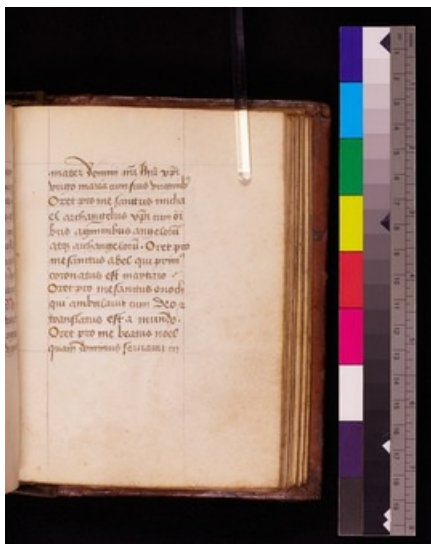 mater domini nri ihu xpi
virgo maria cum suis virginib
Oret pro me sanctus micha
el archangelus xpi cum oi
bus agminibus angelorū
atq archangelorū. Oret pro
me sanctus abel qui prim
coronatus est martirio
Oret pro me sanctus enoch
qui ambulavit cum deo z
translatus est a mundo.
Oret pro me beatus noel
quam dominus servavit in